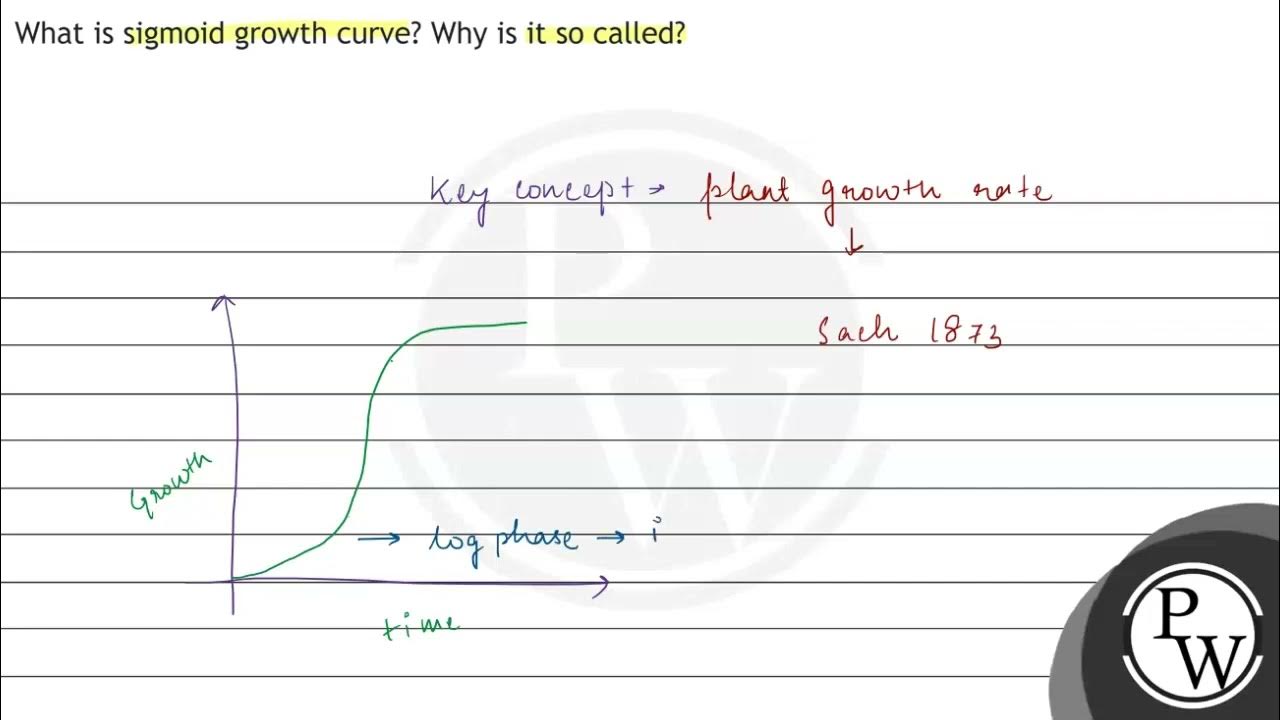 What is sigmoid growth curve? Why is it so called?
Key concept → plant growth rate
↓
Sach 1873
Growth
→ log phase → i
time
P
W
PW